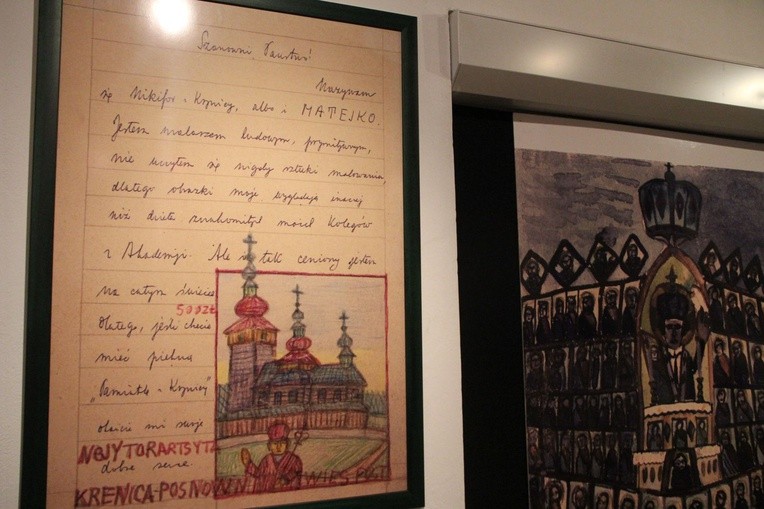 Szanowni Państwo!
Nazywam
się Nikifor z Krynicy, albo i MATEJKO.
Jestem malarzem ludowym, prymitywnym,
nie uczyłem się nigdy sztuki malowania,
dlatego obrazki moje wyglądają inaczej
niż dzieła znakomitych moich Kolegów
z Akademji. Ale i tak ceniony jestem
na całym świecie
50 OZŁ
Dlatego, jeśli chcecie
mieć piękną
"Pamiątkę z Krynicy"
dajcie mi swoje
NEJYTORARTSYTA
dobre serce.
KRENICA-POSNOWN WIES POST